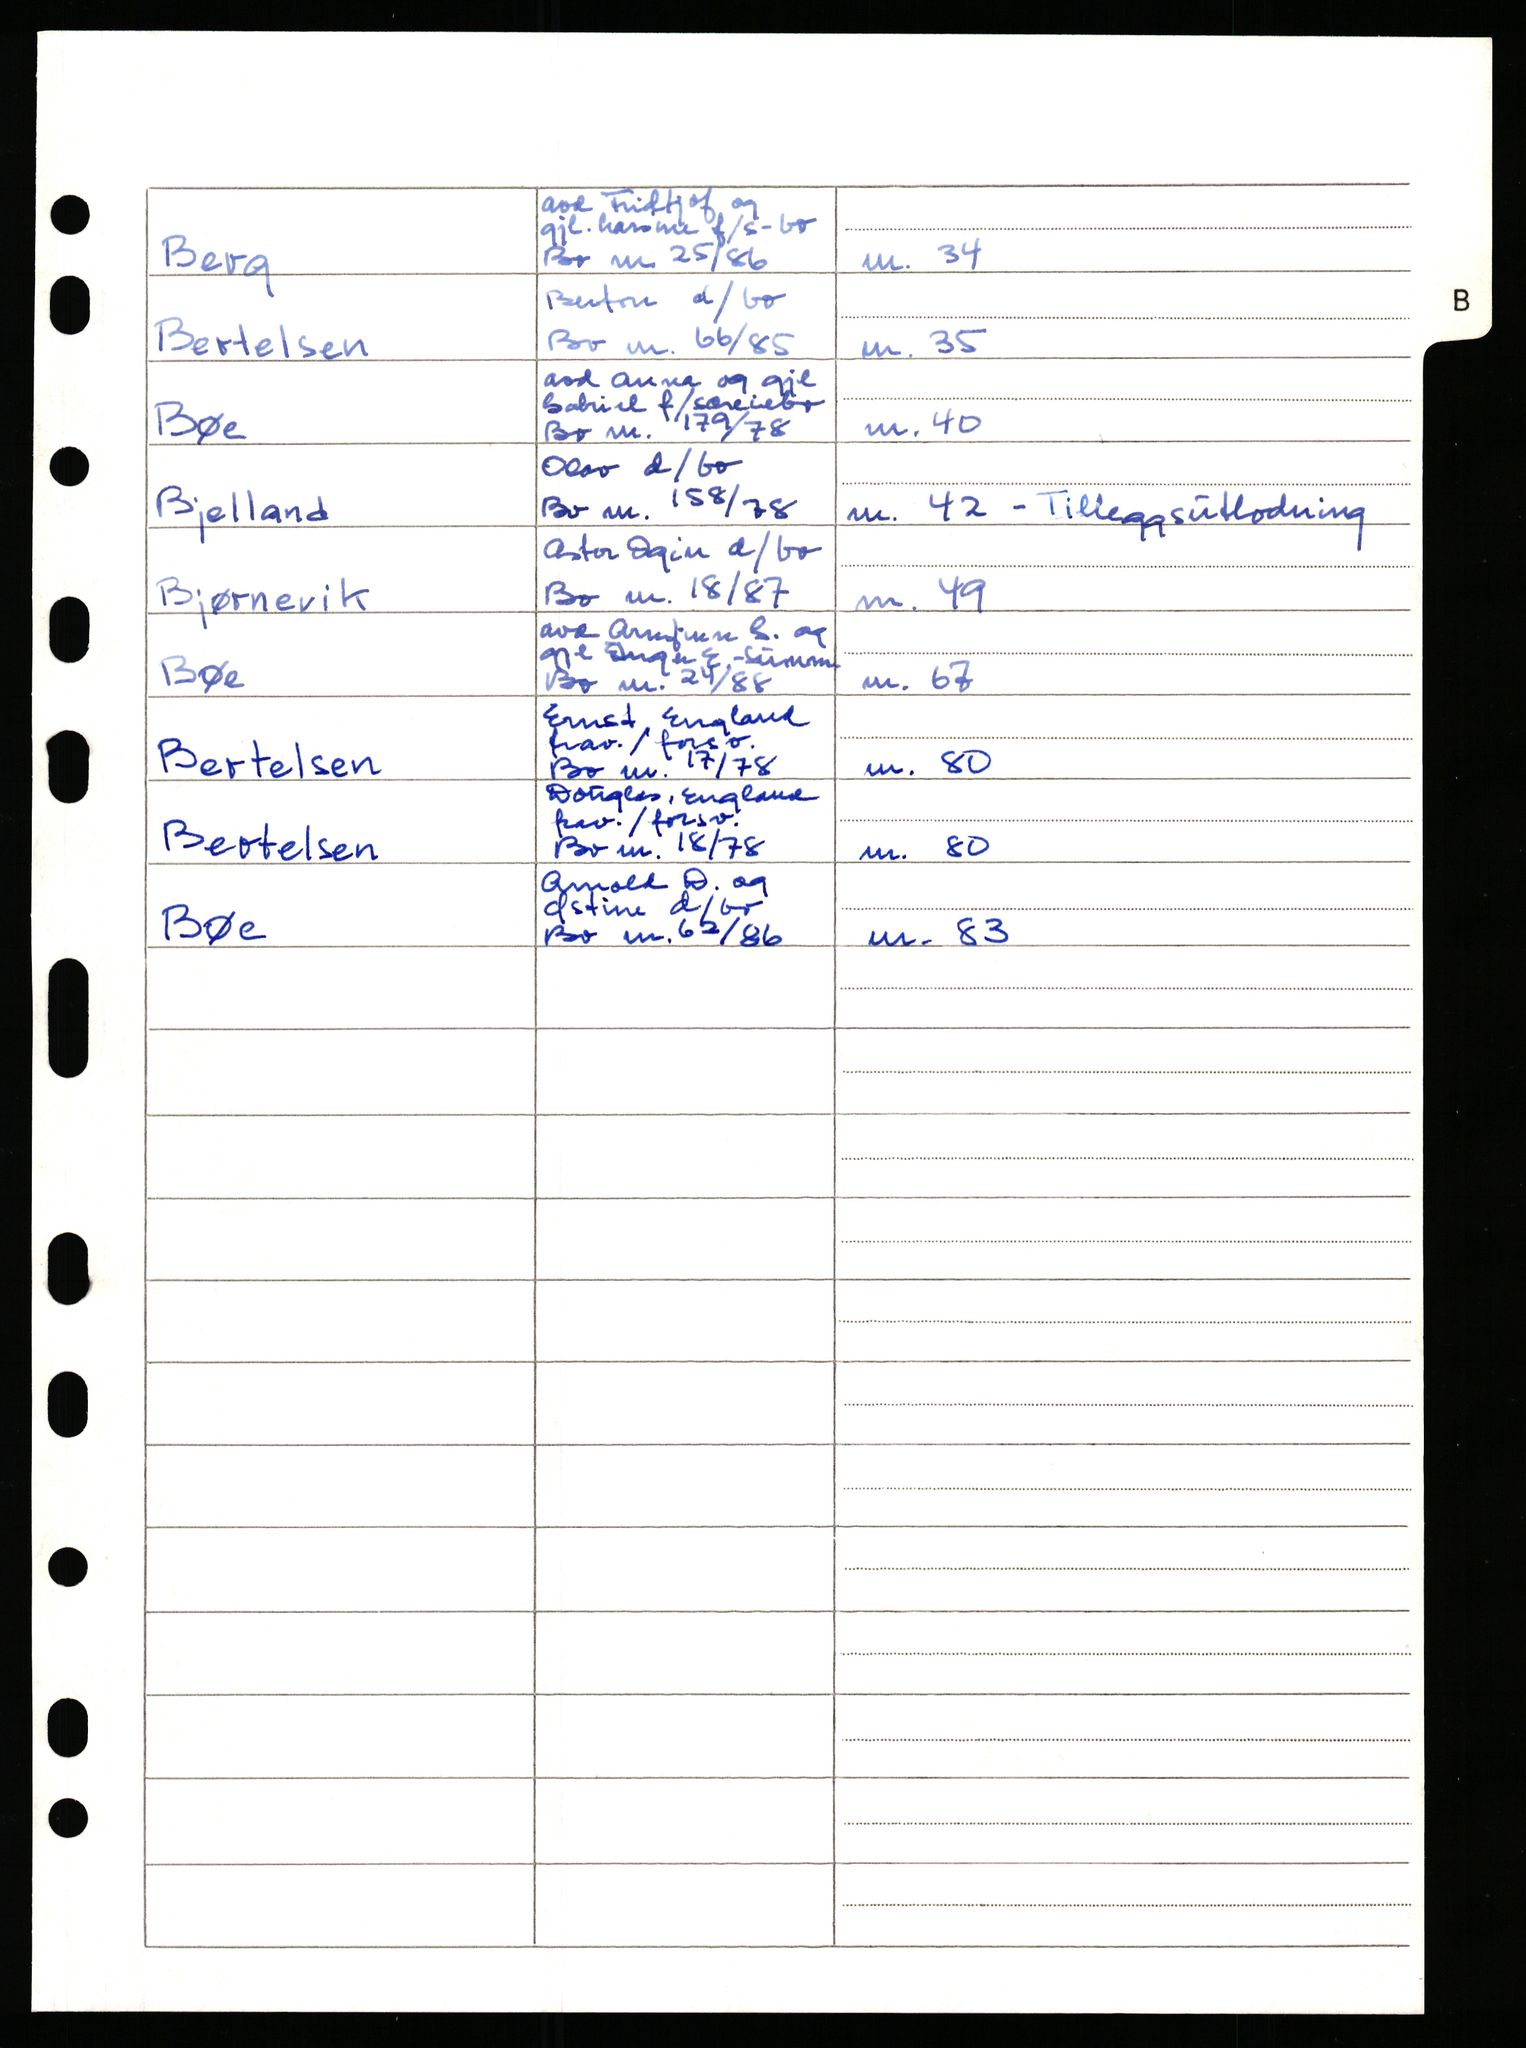 B
avd Fridtjof og
gjl. f/s-bo
Berg Bo nr. 25/86 nr. 34
d/bo
Bertelsen Bo nr. 66/85 nr. 35
avd Anna og gjl
Gabriel f/særeiebo
Bøe Bo nr. 179/78 nr. 40
Olav d/bo
Bjelland Bo nr. 158/78 nr. 42 - Tilleggsutlodning
Astor Egin d/bo
Bjørnevik Bo nr. 18/87 nr. 49
avd Arnfinn G. og
gjl Inger E.
Bøe Bo nr. 24/88 nr. 67
Ernst, England
frav./forsv.
Bertelsen Bo nr. 17/78 nr. 80
Douglas, England
frav./forsv.
Bertelsen Bo nr. 18/78 nr. 80
Arnold D. og
d/bo
Bøe Bo nr. 63/86 nr. 83